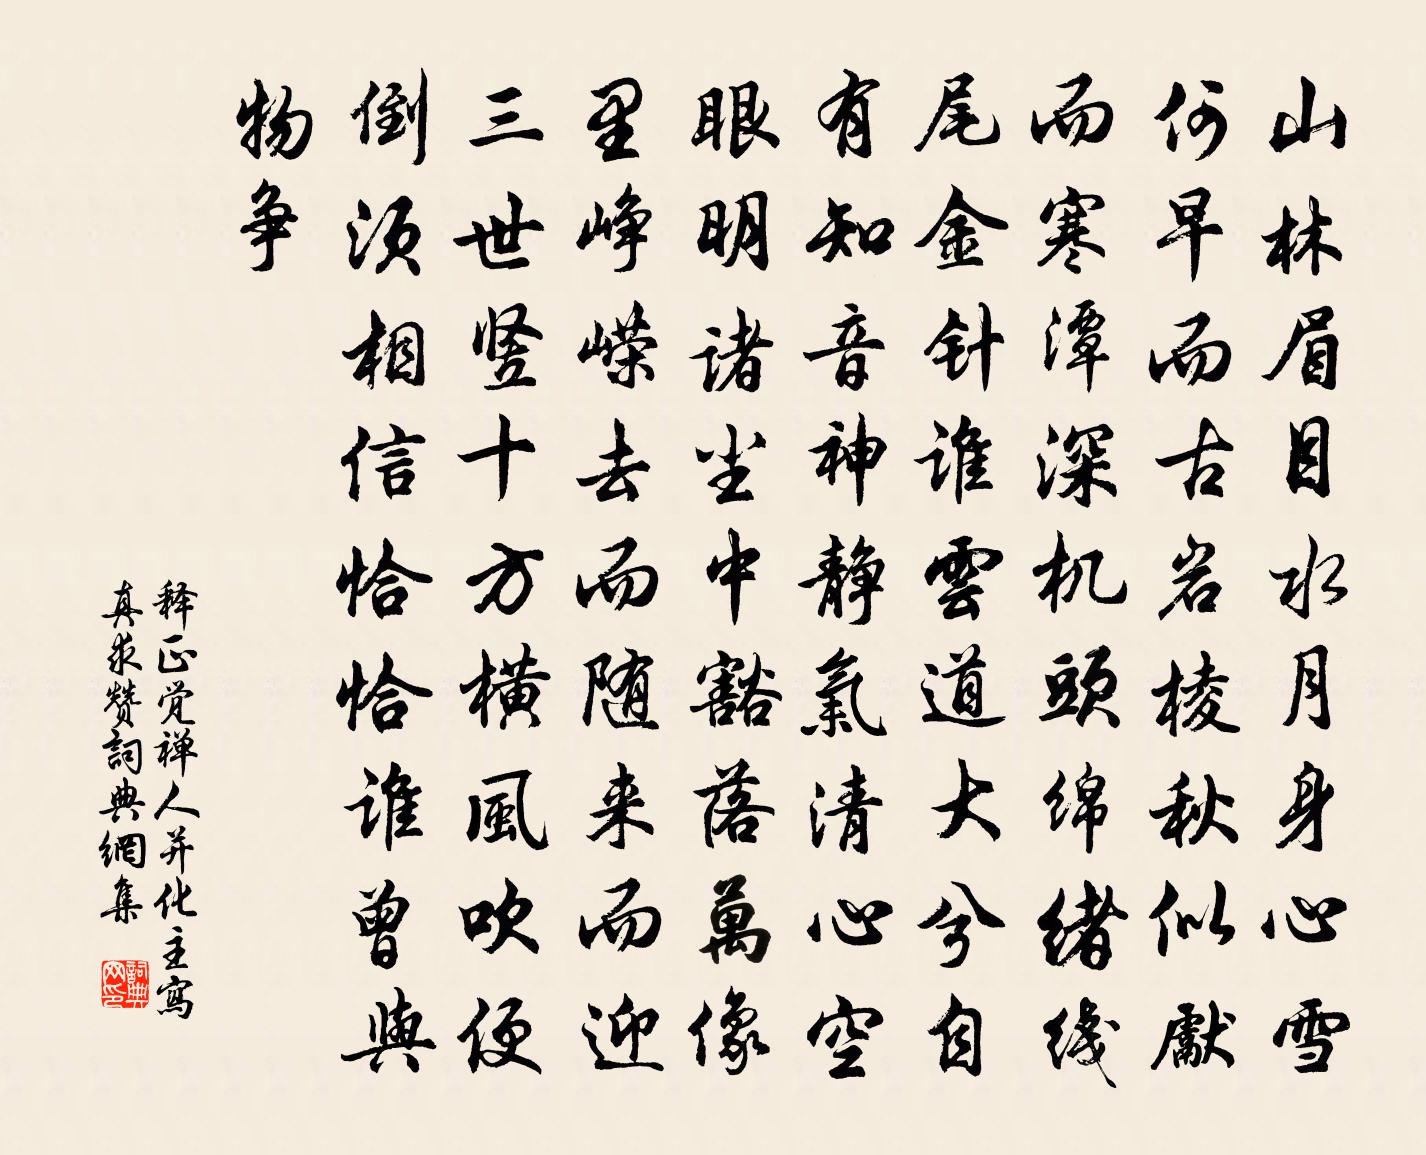 山林眉目水月身心雪
何早而古岩棱秋似獻
而寒潭深机頭绵緒线
尾金针谁雲道大兮自
有知音神静氣清心空
眼明诸尘中豁落萬像
里峥嵘去而随来而迎
三世竖十方横風吹便
倒须相信恰恰谁曾與
物争
释正觉禅人并化主寫
真求赞詞典網集
詞典网印